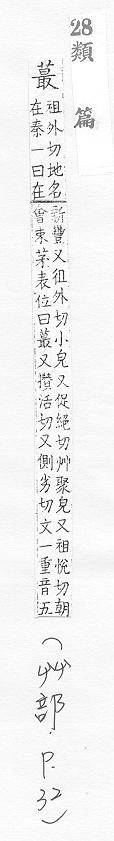 28
類篇
蕞
祖外切地名
在秦一曰在
新豐又徂外切小皃又促絕切艸聚皃又祖悅切朝
會束茅表位曰蕞又攢活切又側劣切文一重音五
(艸部.P.32)